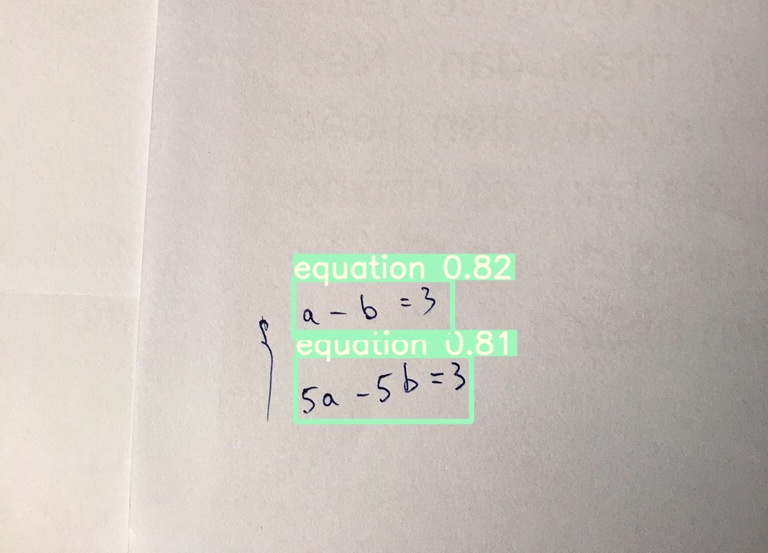 equation 0.82
a - b = 3
equation 0.81
5a - 5b = 3